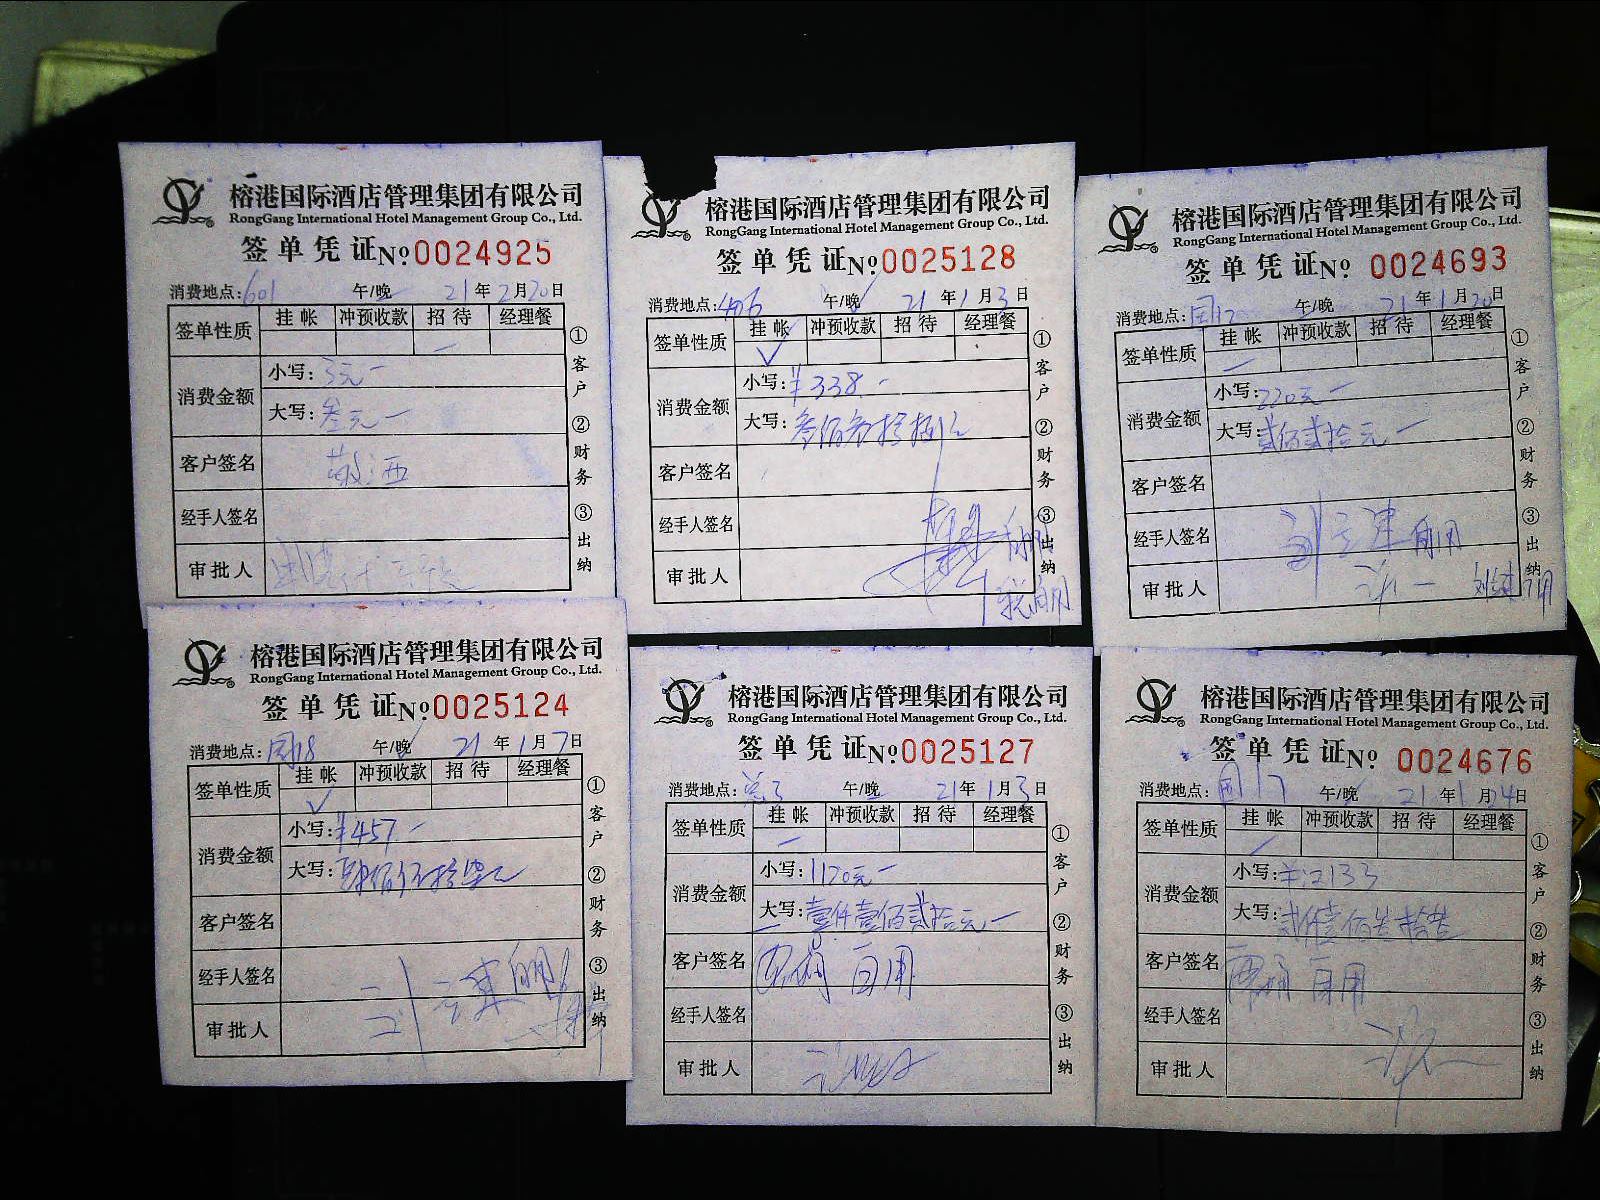 榕港国际酒店管理集团有限公司
RongGang International Hotel Management Group Co., Ltd.
签单凭证 №0024925
消费地点:601 午/晚 21年2月20日
签单性质 挂帐 冲预收款 招待 经理餐
消费金额 小写:3元
大写:叁元
客户签名
经手人签名
审批人
①客户 ②财务 ③出纳
榕港国际酒店管理集团有限公司
RongGang International Hotel Management Group Co., Ltd.
签单凭证 №0025128
消费地点: 午/晚 21年1月3日
签单性质 挂帐 冲预收款 招待 经理餐
消费金额 小写:¥338
大写:
客户签名
经手人签名
审批人 自用
①客户 ②财务 ③出纳
榕港国际酒店管理集团有限公司
RongGang International Hotel Management Group Co., Ltd.
签单凭证 № 0024693
消费地点: 午/晚 21年1月20日
签单性质 挂帐 冲预收款 招待 经理餐
消费金额 小写:220元
大写:贰佰贰拾元
客户签名
经手人签名 自用
审批人
①客户 ②财务 ③出纳
榕港国际酒店管理集团有限公司
RongGang International Hotel Management Group Co., Ltd.
签单凭证 №0025124
消费地点: 午/晚 21年1月7日
签单性质 挂帐 冲预收款 招待 经理餐
消费金额 小写:¥457
大写:肆佰伍拾柒元
客户签名
经手人签名
审批人
①客户 ②财务 ③出纳
榕港国际酒店管理集团有限公司
RongGang International Hotel Management Group Co., Ltd.
签单凭证 №0025127
消费地点: 午/晚 21年1月3日
签单性质 挂帐 冲预收款 招待 经理餐
消费金额 小写:1120元
大写:壹仟壹佰贰拾元
客户签名 自用
经手人签名
审批人
①客户 ②财务 ③出纳
榕港国际酒店管理集团有限公司
RongGang International Hotel Management Group Co., Ltd.
签单凭证 № 0024676
消费地点: 午/晚 21年1月24日
签单性质 挂帐 冲预收款 招待 经理餐
消费金额 小写:¥2133
大写:贰仟壹佰叁拾叁
客户签名 自用
经手人签名
审批人
①客户 ②财务 ③出纳